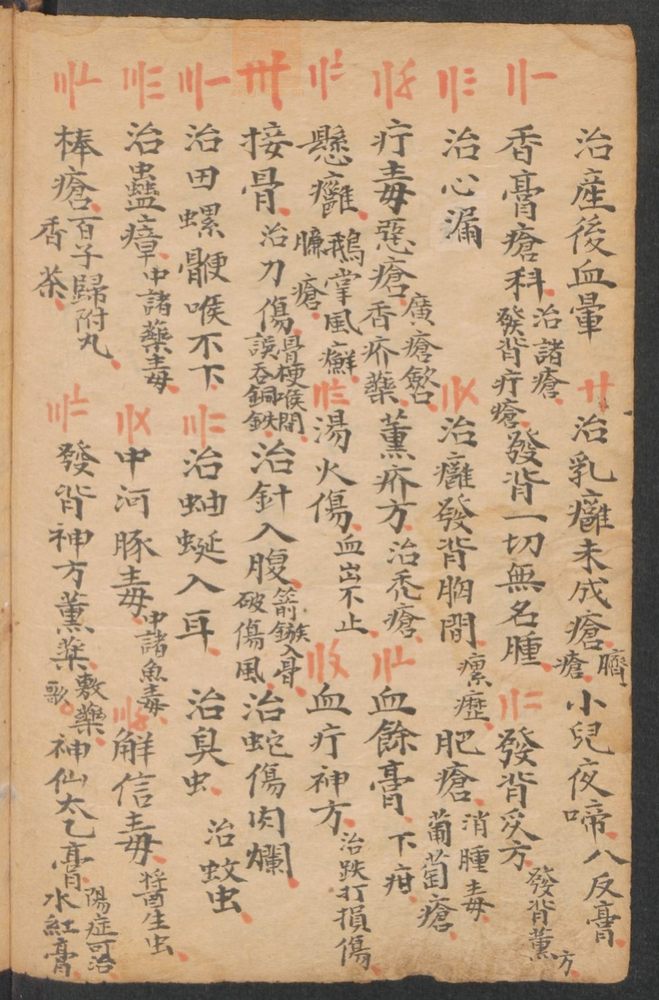 治產後血暈 廿 治乳癰未成瘡 臍瘡 小兒夜啼 八反膏
〢一 香膏瘡科 治諸瘡 發背疔瘡 發背一切無名腫 〢二 發背灸方 發背薰方
〢三 治心漏 〢〤 治癰發背胸間 瘰癧 肥瘡 消腫毒 葡萄瘡
疔毒惡瘡 廣瘡 香疥藥 薰疥方 治禿瘡 〢〦 血餘膏 下疳
〢〧 懸癰 鵝掌風癬 臁瘡 〢〨 湯火傷 血出不止 〢〩 血疔神方 治跌打損傷
卅 接骨 治刀傷 骨梗喉間 誤吞銅鉄 治針入腹 箭鏃入骨 破傷風 治蛇傷肉爛
〣一 治田螺骾喉不下 〣二 治蚰蜒入耳 治臭虫 治蚊虫
〣三 治蠱瘴 中諸藥毒 〣〤 中河豚毒 中諸魚毒 解信毒 醬生虫
〣〦 棒瘡 百子歸附丸 香茶 〣〧 發背神方薰藥 敷藥歌 神仙太乙膏 陽症可治 水紅膏